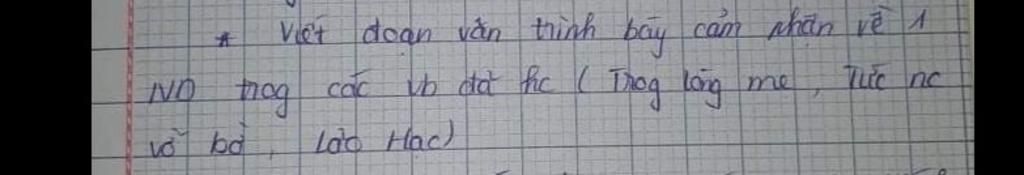 * Viết đoạn văn trình bày cảm nhận về 1
NV trog các vb đã hc ( Trog lòng mẹ, Tức nc
vỡ bờ, Lão Hạc)